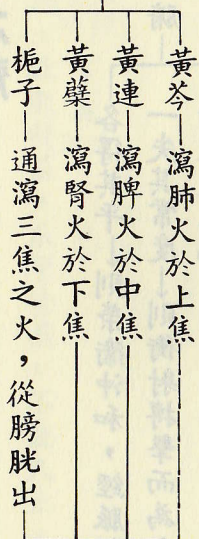 黃芩—瀉肺火於上焦
黃連—瀉脾火於中焦
黃蘗—瀉腎火於下焦
梔子—通瀉三焦之火，從膀胱出